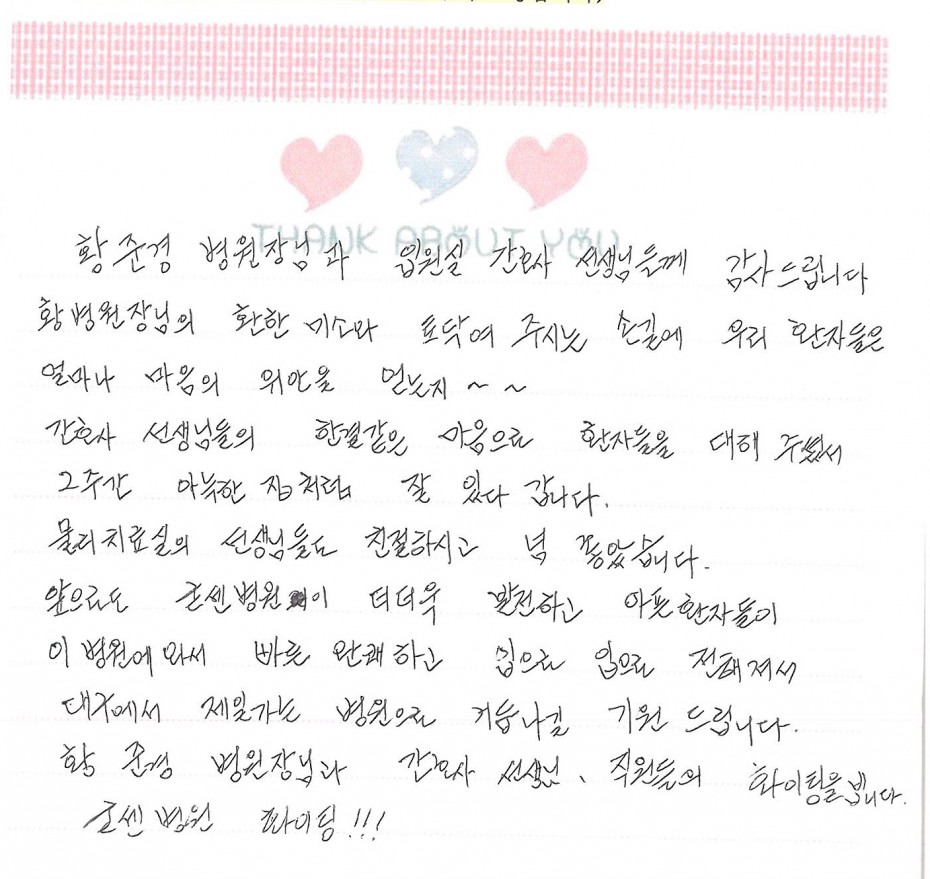 THANK ABOUT YOU
황준경 병원장님과 입원실 간호사 선생님들께 감사드립니다
황병원장님의 환한 미소와 토닥여 주시는 손길에 우리 환자들은
얼마나 마음의 위안을 얻는지 ~ ~
간호사 선생님들의 한결같은 마음으로 환자들을 대해 주셔서
2주간 아늑한 집처럼 잘 있다 갑니다.
물리치료실의 선생님들도 친절하시고 넘 좋았습니다.
앞으로도 굳센병원이 더더욱 발전하고 아픈 환자들이
이 병원에 와서 빠른 완쾌하고 입으로 입으로 전해져서
대구에서 제일가는 병원으로 거듭나길 기원 드립니다.
황준경 병원장님과 간호사 선생님, 직원들의 화이팅을 빕니다.
굳센병원 화이팅!!!